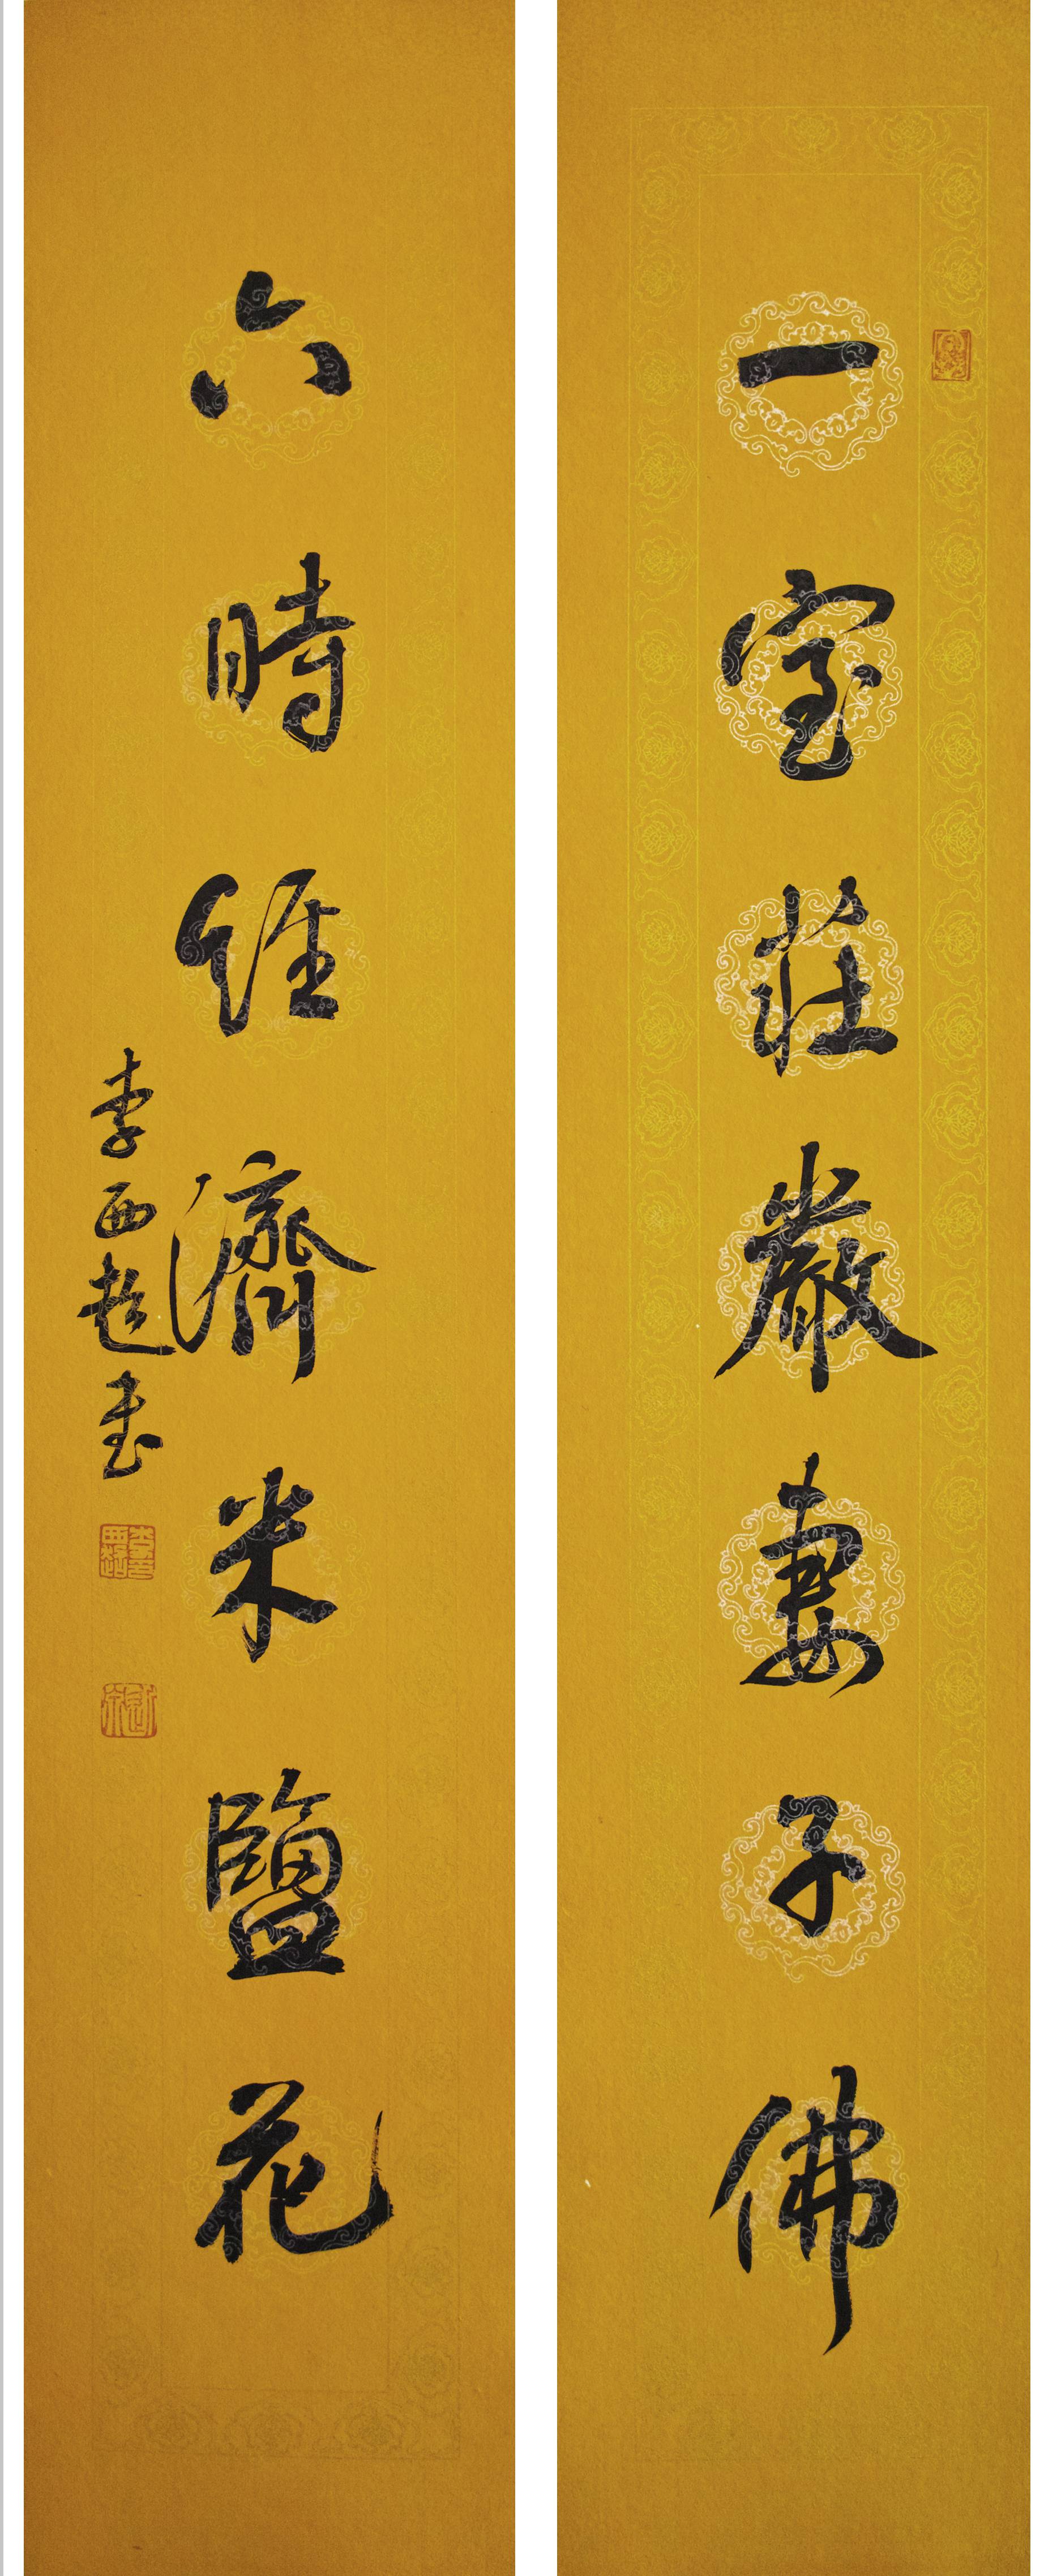 一室莊嚴妻子佛
六時經濟米鹽花
李西超書